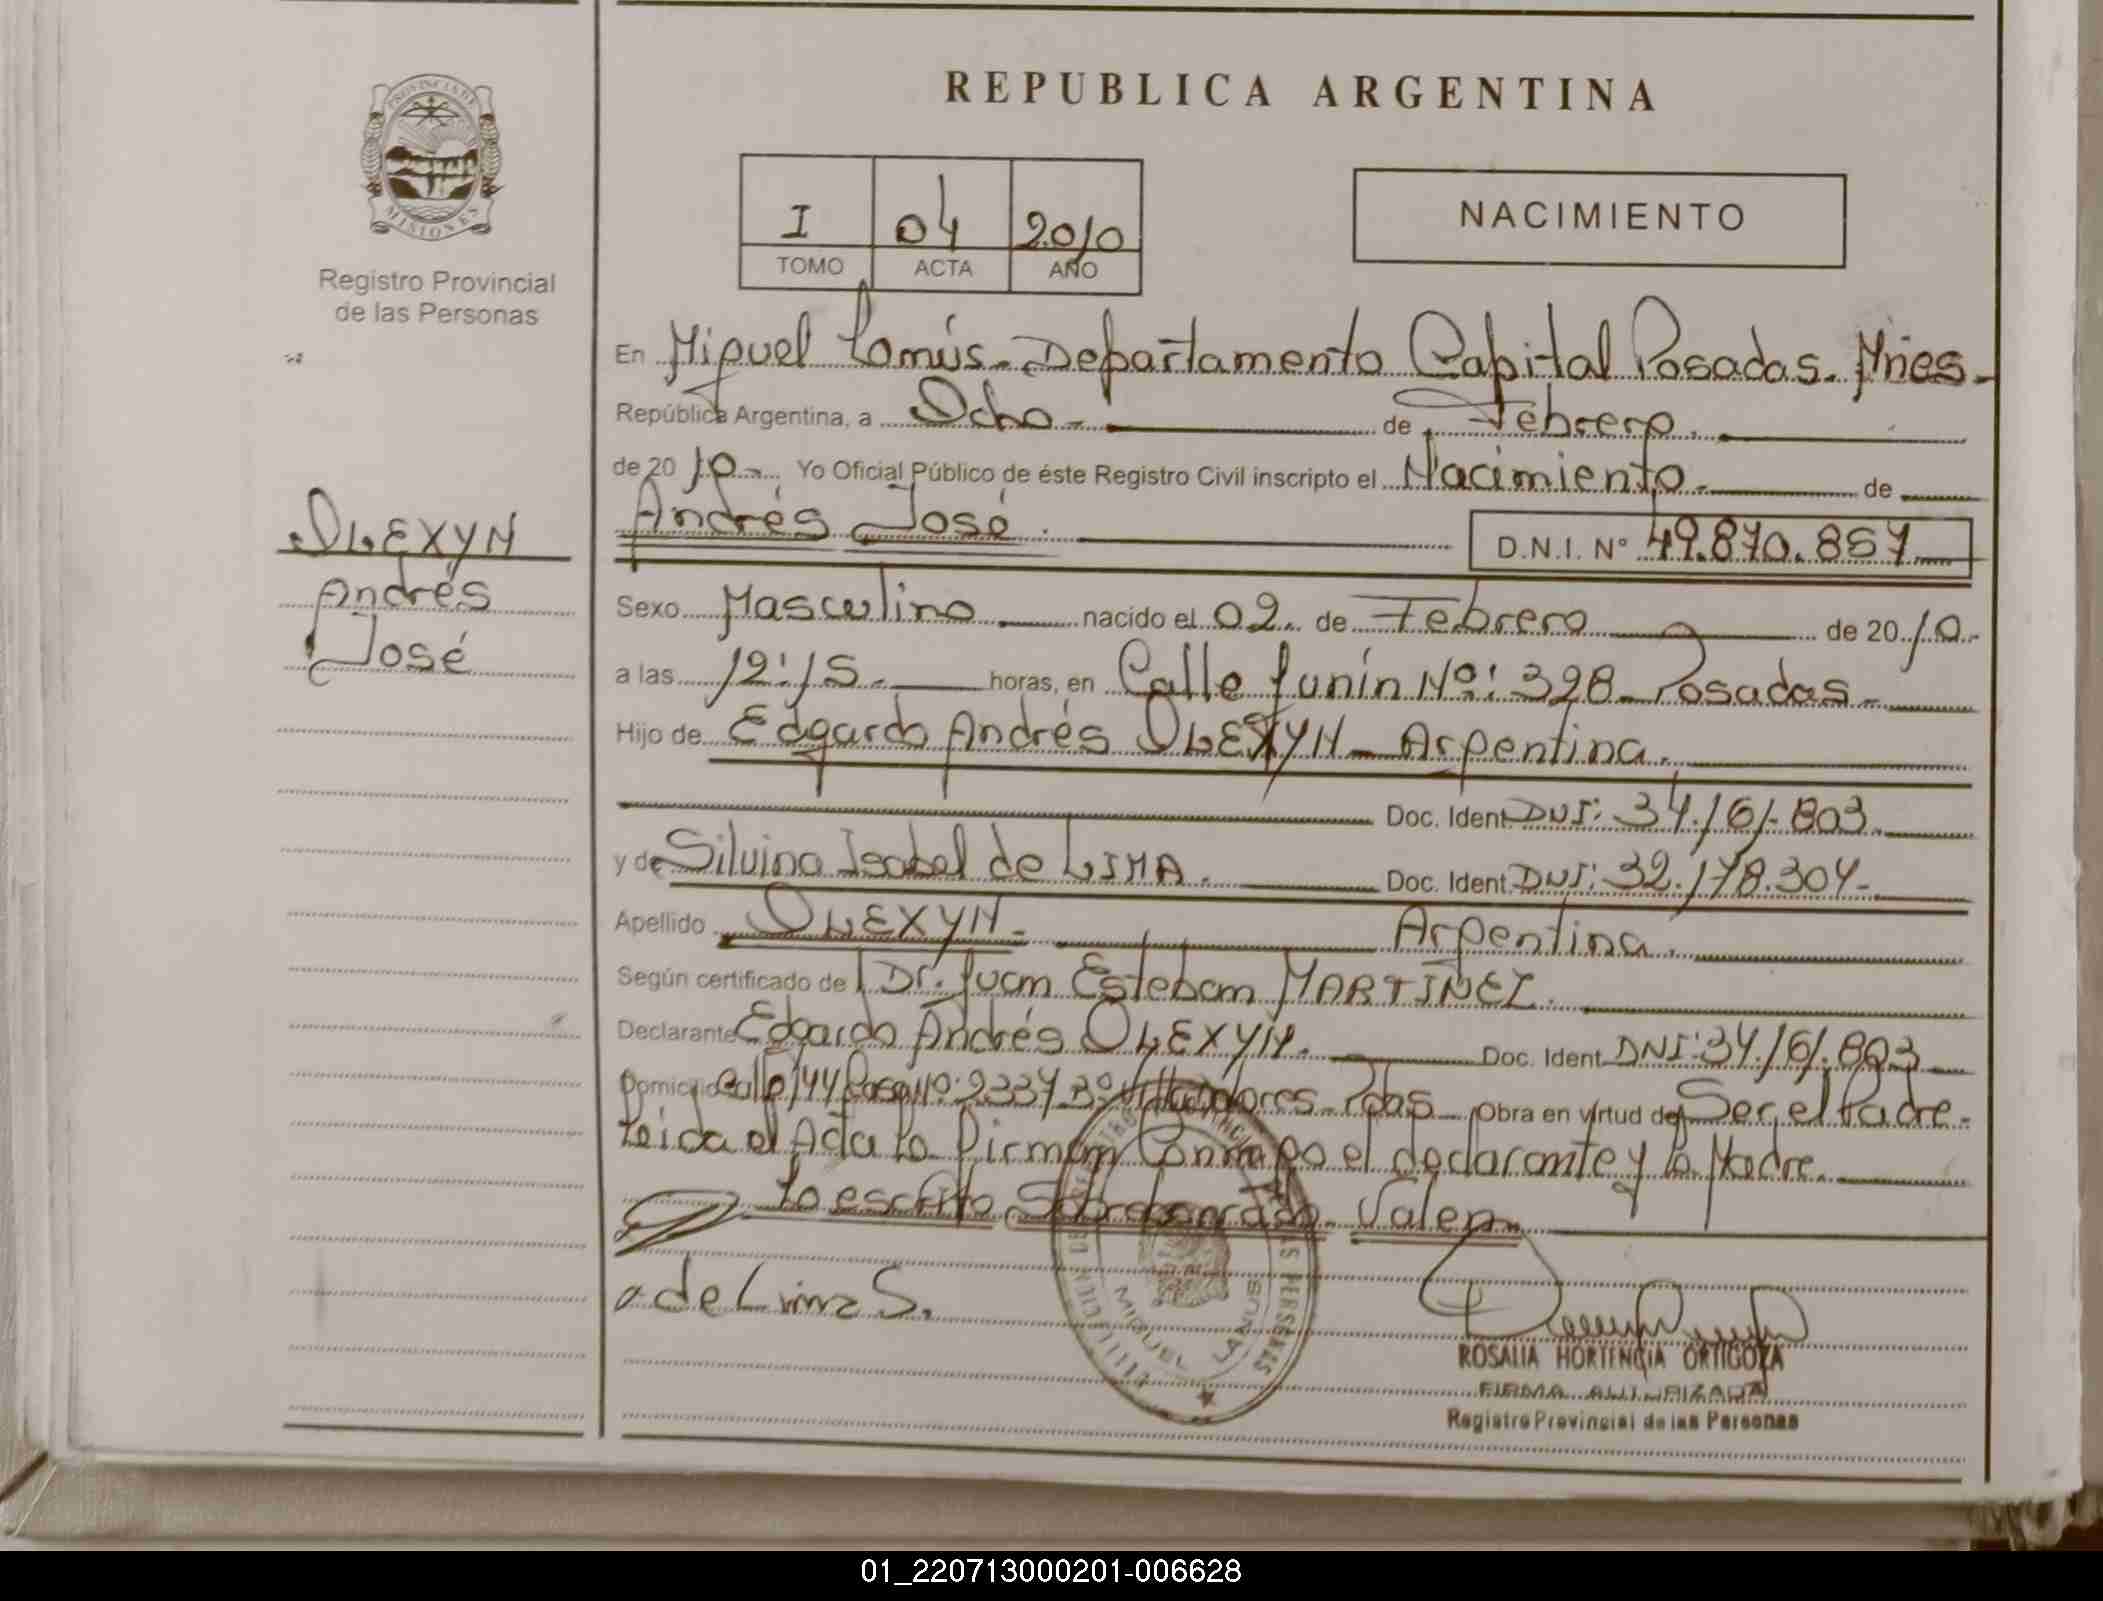 PROVINCIA DE
MISIONES
Registro Provincial
de las Personas
OLEXYN
Andrés
José
REPUBLICA ARGENTINA
I 04 2010
TOMO ACTA AÑO
NACIMIENTO
En Miguel Lanús - Departamento Capital Posadas - Mnes -
República Argentina, a Ocho - de Febrero.
de 20 10 - Yo Oficial Público de éste Registro Civil inscripto el Nacimiento - de
Andrés José. D.N.I. Nº 49.870.857
Sexo Masculino nacido el 02 de Febrero de 20 10
a las 12:15 horas, en Calle Junín Nº: 328 - Posadas -
Hijo de Edgardo Andrés OLEXYN - Argentina.
Doc. Ident. DNI: 34.161.803
y de Silvina Isabel de LIMA. Doc. Ident. DNI: 32.178.304 -
Apellido OLEXYN - Argentina.
Según certificado de Dr. Juan Esteban MARTINEZ.
Declarante Edgardo Andrés OLEXYN. Doc. Ident. DNI: 34.161.803
Domicilio Calle 144 Casa Nº: 2337 Pdas - Obra en virtud de Ser el Padre -
Leida el Acta la Firman Conmigo el declarante y la Madre.
Lo escrito Sobreborrado - Vale
de Lima S.
MIGUEL LANUS
ROSALIA HORTENCIA ORTIGOZA
FIRMA AUTORIZADA
Registro Provincial de las Personas
01_220713000201-006628